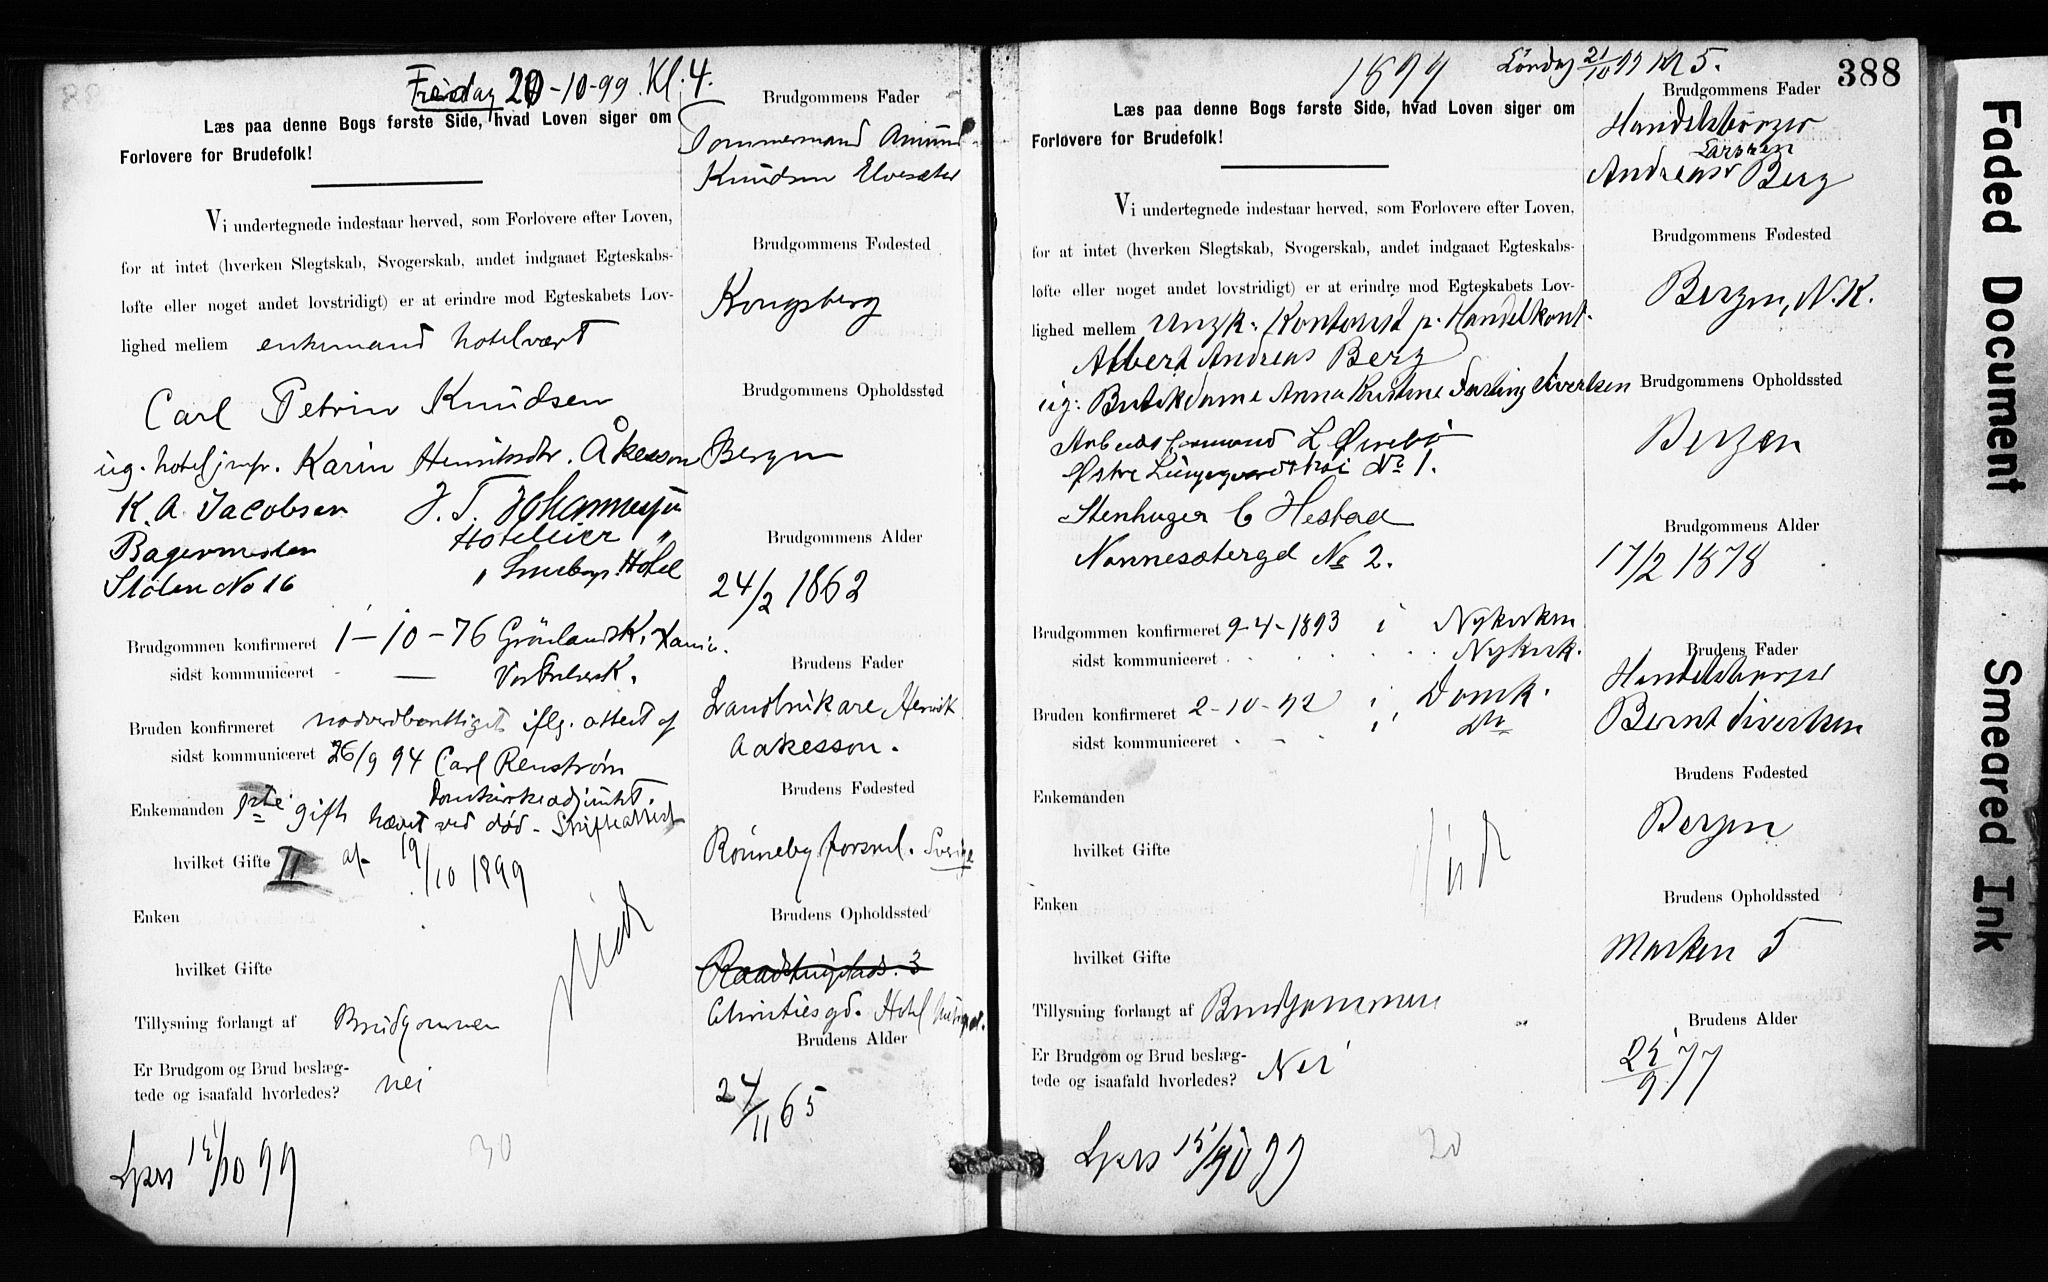 Fredag 20-10-99. Kl. 4.
Læs paa denne Bogs første Side, hvad Loven siger om
Forlovere for Brudefolk!
Vi undertegnede indestaar herved, som Forlovere efter Loven,
for at intet (hverken Slegtskab, Svogerskab, andet indgaaet Egteskabs-
løfte eller noget andet lovstridigt) er at erindre mod Egteskabets Lov-
lighed mellem enkemand hotelvært
Carl Petrin Knudsen
ug. hoteljmfr. Karin Henriksdtr. Åkesson
K. A. Jacobsen
Bagermester
Stølen No 16
J. T. Johannesen
Hoteleier
" Hotel
Brudgommen konfirmeret 1-10-76 Grönlands K.
sidst kommuniceret - —
Bruden konfirmeret nadverdberettiget iflg. attest af
sidst kommuniceret 26/9 94 Carl Renstrøm
Domkirkeadjunkt.
Enkemanden 1ste gift hævet ved død - Skifteattest
hvilket Gifte II af 19/10 1899
Enken
hvilket Gifte
Viet
Tillysning forlangt af Brudgommen
Er Brudgom og Brud beslæg-
tede og isaafald hvorledes? nei
Lyses 15/10 99
30
Brudgommens Fader
Tømmermand Amund
Knudsen Elvesæter
Brudgommens Fødested
Kongsberg
Brudgommens Opholdssted
Bergen
Brudgommens Alder
24/2 1862
Brudens Fader
Landbrukare Henrik
Aakesson.
Brudens Fødested
Rönneby forsml. Sverige
Brudens Opholdssted
Raadhusplads. 3
Christiesgd. Hotel
Brudens Alder
24/11 65
1899
Lördag 21/10 99 Kl 5.
388
Læs paa denne Bogs første Side, hvad Loven siger om
Forlovere for Brudefolk!
Vi undertegnede indestaar herved, som Forlovere efter Loven,
for at intet (hverken Slegtskab, Svogerskab, andet indgaaet Egteskabs-
løfte eller noget andet lovstridigt) er at erindre mod Egteskabets Lov-
lighed mellem Ungk. Kontorist p. Handelkont.
Albert Andreas Berg
ug. Butikdame Anna Kristine Sivertsen
Arbeidsformand L Øvrebø
Østre Lungegaardskai No 1.
Stenhuger C Hestad
Nonnesætergd No 2.
Brudgommen konfirmeret 9-4-1893 i Nykirken
sidst kommuniceret Nykirk.
Bruden konfirmeret 2-10-92 i Domk.
sidst kommuniceret i Do
Enkemanden
hvilket Gifte
Enken
hvilket Gifte
Viet
Tillysning forlangt af Brudgommen
Er Brudgom og Brud beslæg-
tede og isaafald hvorledes? Nei
Lyses 15/10 99
20
Brudgommens Fader
Handelsborger
Larsen
Andreas Berg
Brudgommens Fødested
Bergen, N. K.
Brudgommens Opholdssted
Bergen
Brudgommens Alder
17/2 1878
Brudens Fader
Handelsborger
Bernt Sivertsen
Brudens Fødested
Bergen
Brudens Opholdssted
Marken 5
Brudens Alder
25/9 77
Faded Document
Smeared Ink